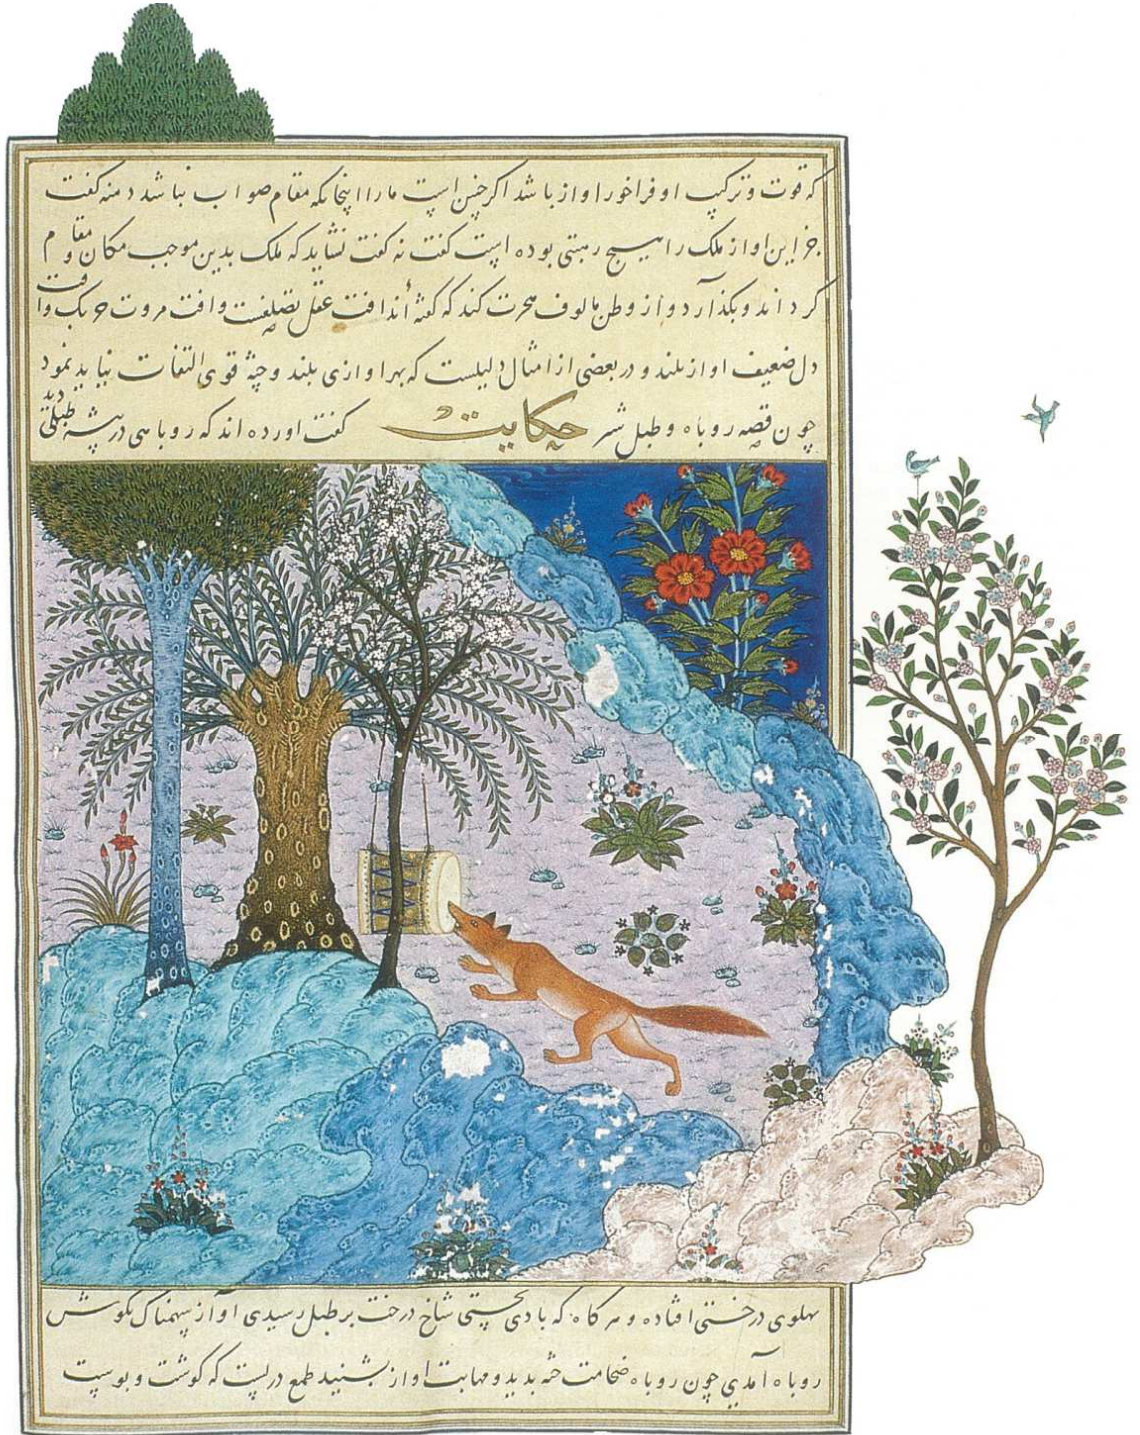 که قوت و ترکیب او فراخور اواز باشد اکر چنین است ما را اینجا نکه مقام صواب نباشد دمنه کفت
جز این اواز ملک را هیچ ریبتی بوده است کفت نه کفت نشاید که ملک بدین موجب مکان و مقام
کرداند و بکذارد و از وطن مالوف هجرت کند که کفته اند افت عقل تصلفست و افت مروت چربک و افت
دل ضعیف اواز بلند و در بعضی از امثال دلیلست که بهر اوازی بلند و جثه قوی التفات نباید نمود
چون قصه روباه و طبل شیر حکایت کفت اورده اند که روباهی در بیشه طبلی دید
پهلوی درختی افتاده و هر کاه که بادی بجستی شاخ درخت بر طبل رسیدی اواز سهمناک بکوش
روباه آمدی چون روباه ضخامت جثه بدید و مهابت اواز بشنید طمع دربست که کوشت و پوست